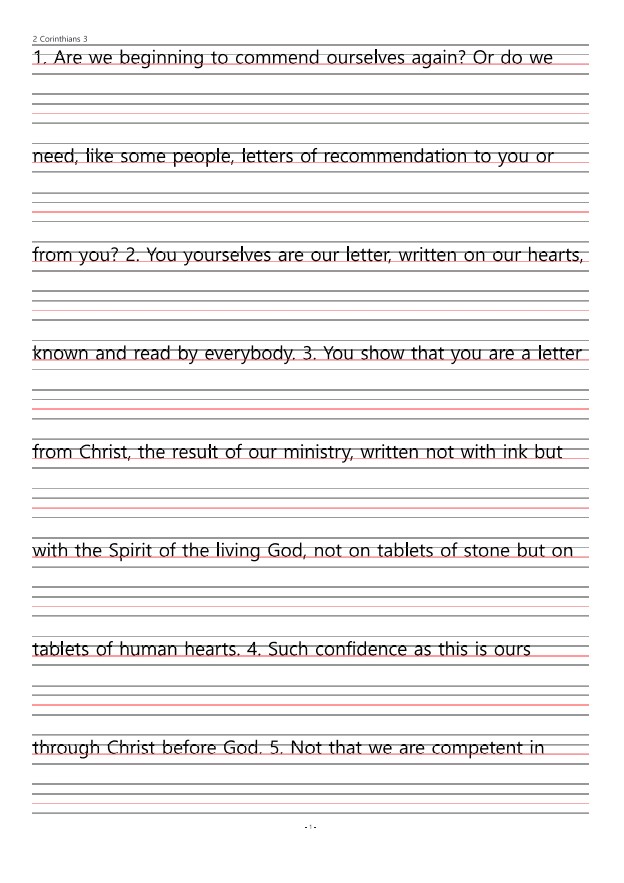 2 Corinthians 3
1. Are we beginning to commend ourselves again? Or do we
need, like some people, letters of recommendation to you or
from you? 2. You yourselves are our letter, written on our hearts,
known and read by everybody. 3. You show that you are a letter
from Christ, the result of our ministry, written not with ink but
with the Spirit of the living God, not on tablets of stone but on
tablets of human hearts. 4. Such confidence as this is ours
through Christ before God. 5. Not that we are competent in
- 1 -